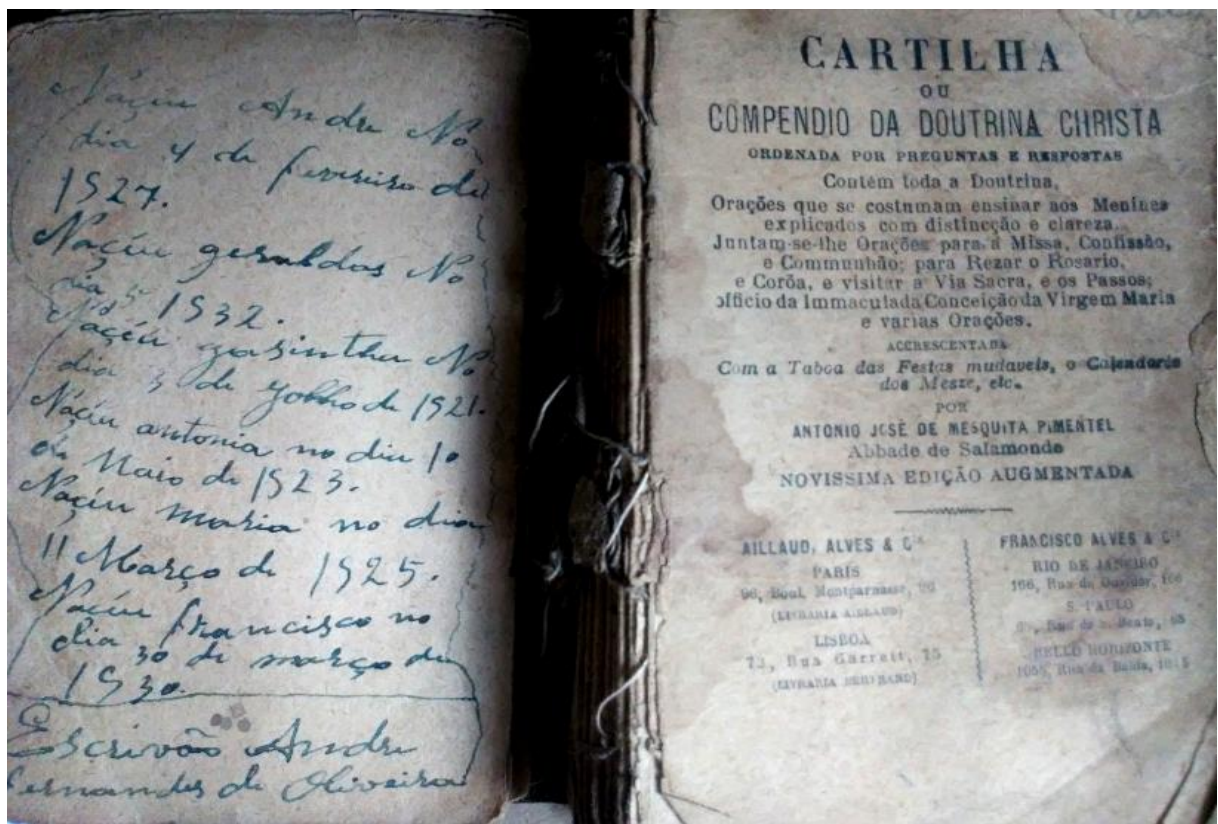 Naçeu Andre No
dia 4 de fevereiro de
1927.
Naçeu geraldos No
dia 5 1932.
Naçeu yasintha No
dia 3 de yolho de 1921.
Naçeu antonia no dia 10
de Maio de 1923.
Naçeu maria no dia
11 Março de 1925.
Naçeu francisco no
dia 30 de março de
1930.
Escrivão Andre
Fernandes de Oliveira
CARTILHA
OU
COMPENDIO DA DOUTRINA CHRISTA
ORDENADA POR PREGUNTAS E RESPOSTAS
Contém toda a Doutrina,
Orações que se costumam ensinar aos Meninos
explicados com distincção e clareza.
Juntam-se-lhe Orações para a Missa, Confissão,
e Communhão; para Rezar o Rosario,
e Corôa, e visitar a Via Sacra, e os Passos;
officio da Immaculada Conceição da Virgem Maria
e varias Orações.
ACCRESCENTADA
Com a Taboa das Festas mudaveis, o Calendario
dos Mezse, etc.
POR
ANTONIO JOSÉ DE MESQUITA PIMENTEL
Abbade de Salamonde
NOVISSIMA EDIÇÃO AUGMENTADA
AILLAUD, ALVES & Cia
PARIS
96, Boul. Montparnasse, 96
(LIVRARIA AILLAUD)
LISBOA
73, Rua Garrett, 75
(LIVRARIA BERTRAND)
FRANCISCO ALVES & Cia
RIO DE JANEIRO
166, Rua do Ouvidor, 166
S. PAULO
Rua de S. Bento, 65
BELLO HORIZONTE
1055, Rua da Bahia, 1055